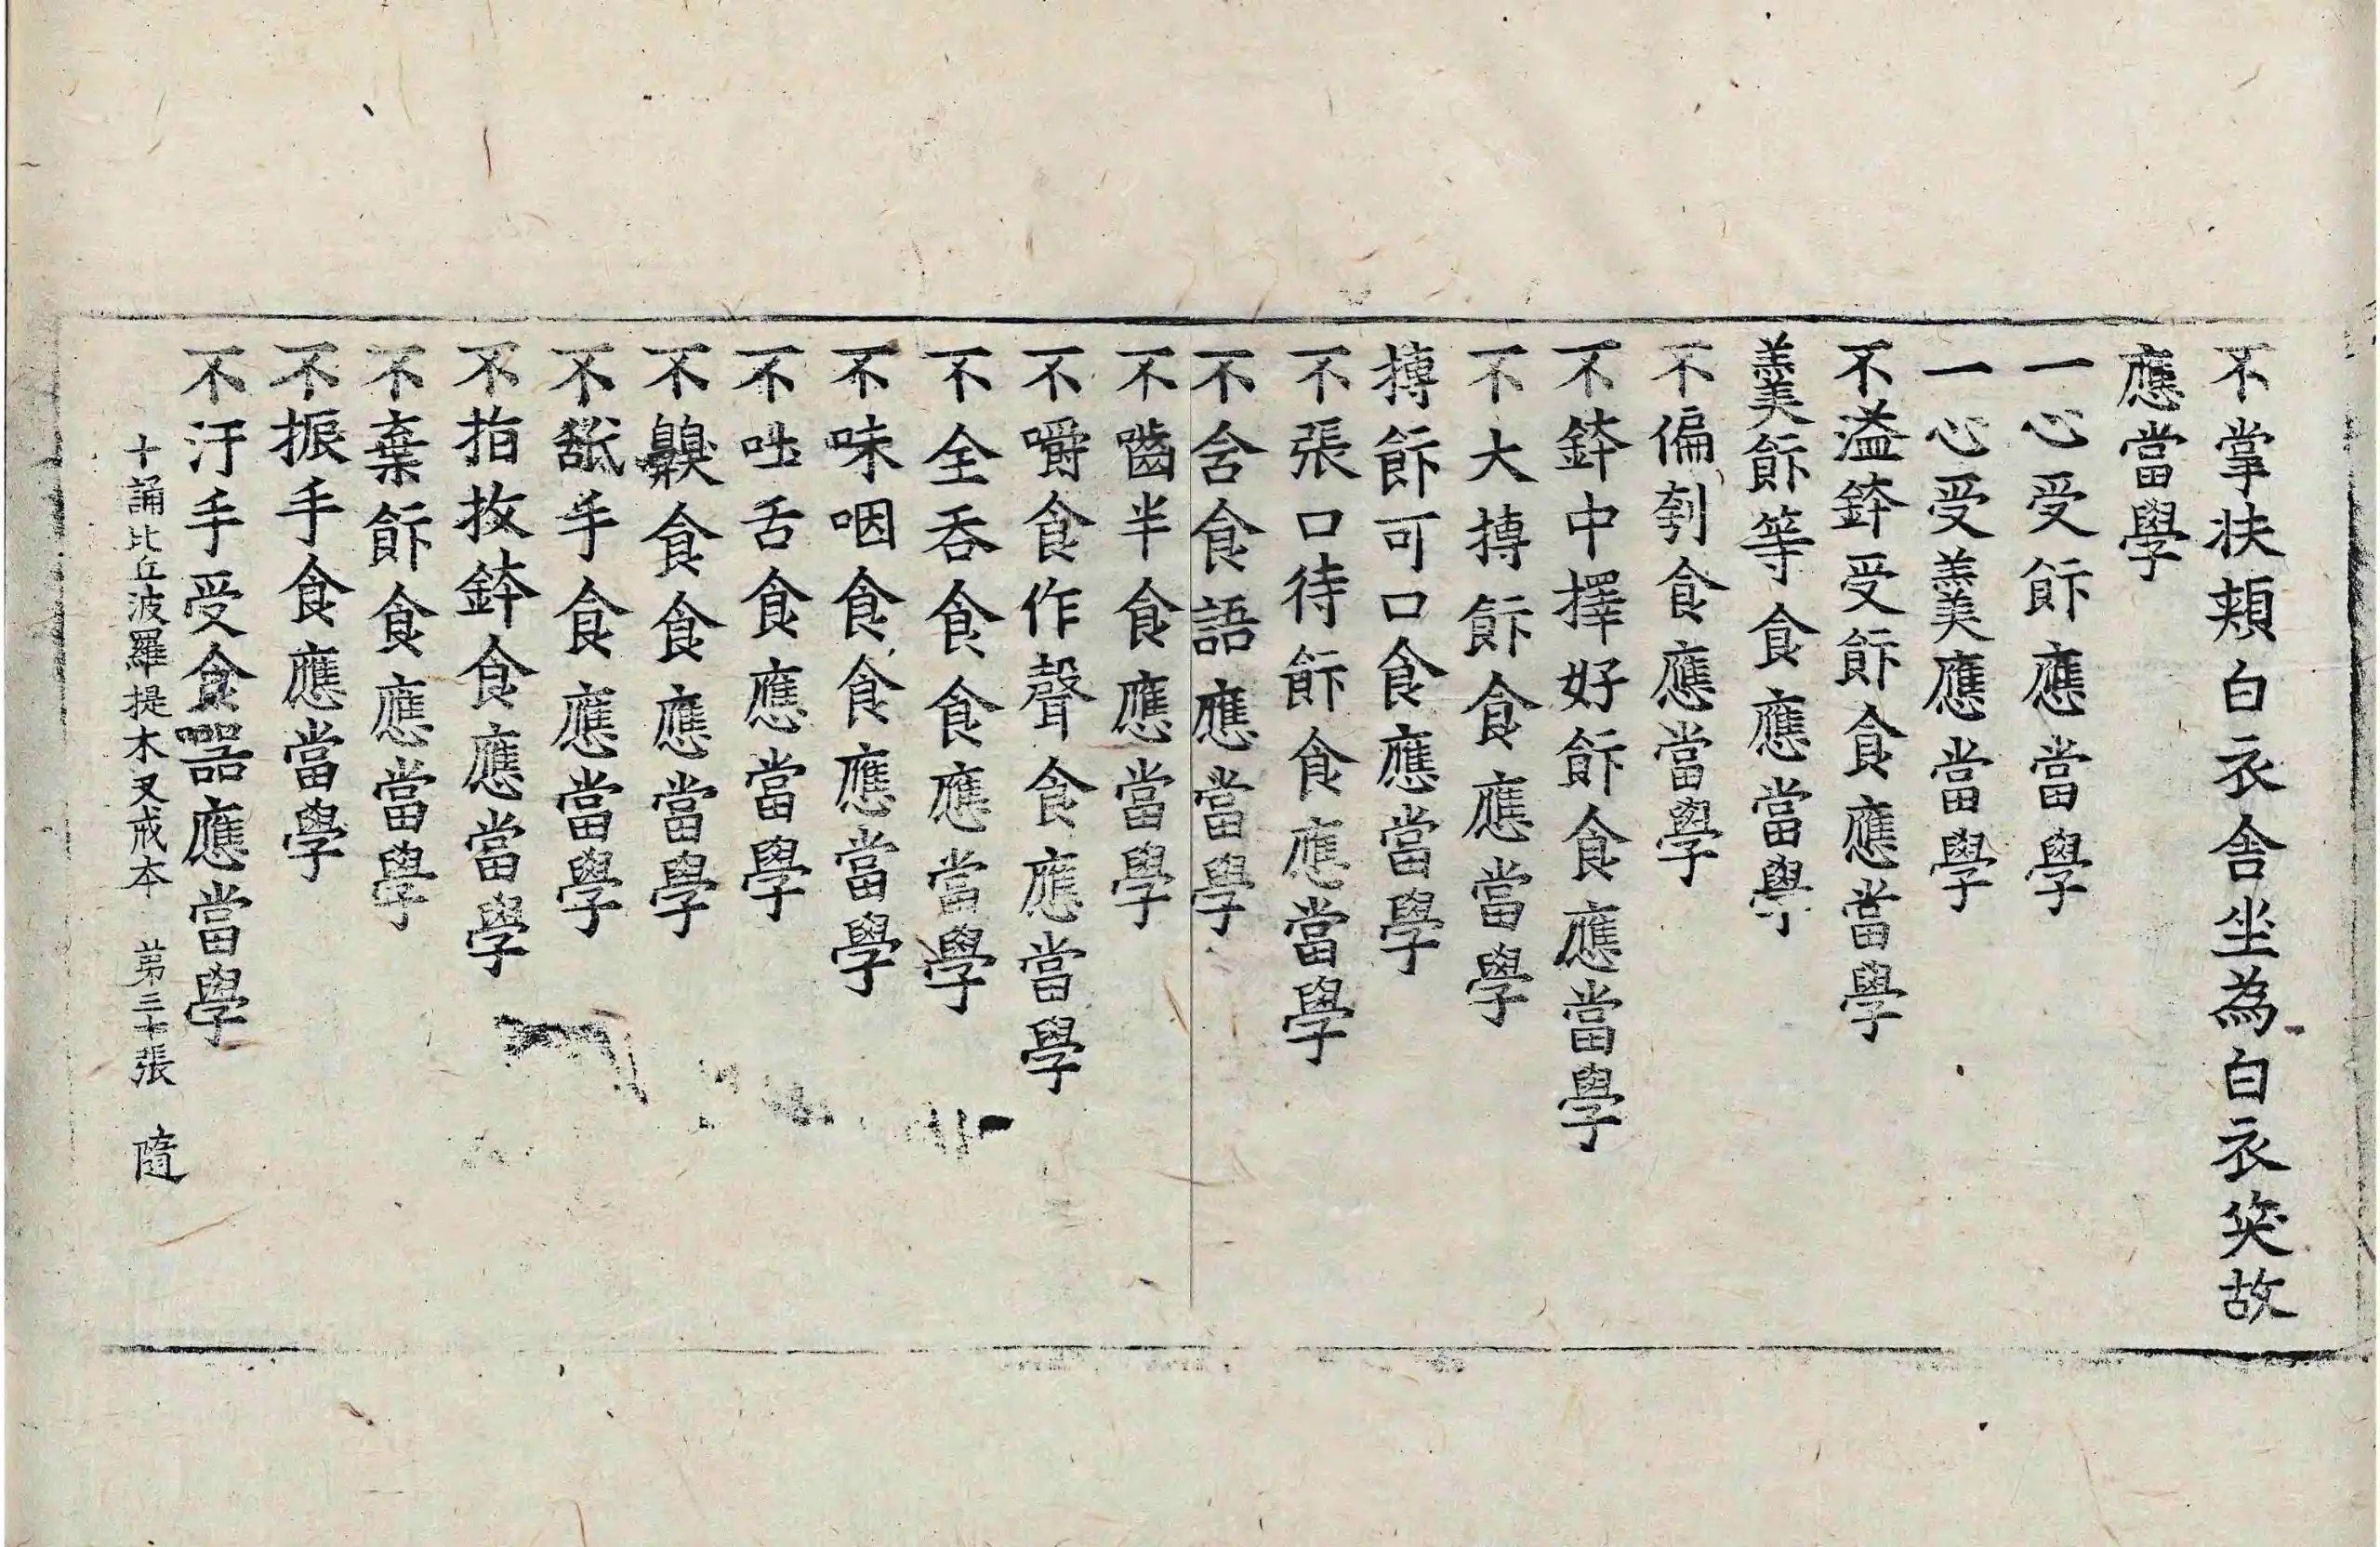 不掌扶頰白衣舍坐為白衣笑故
應當學
一心受飰應當學
一心受羹應當學
不溢鉢受飰食應當學
羹飰等食應當學
不偏刳食應當學
不鉢中擇好飰食應當學
不大摶飰食應當學
摶飰可口食應當學
不張口待飰食應當學
不含食語應當學
不齧半食應當學
不嚼食作聲食應當學
不全吞食食應當學
不味咽食食應當學
不吐舌食應當學
不齅食食應當學
不舐手食應當學
不指抆鉢食應當學
不棄飰食應當學
不振手食應當學
不汙手受食器應當學
十誦比丘波羅提木叉戒本 第三十張 隨